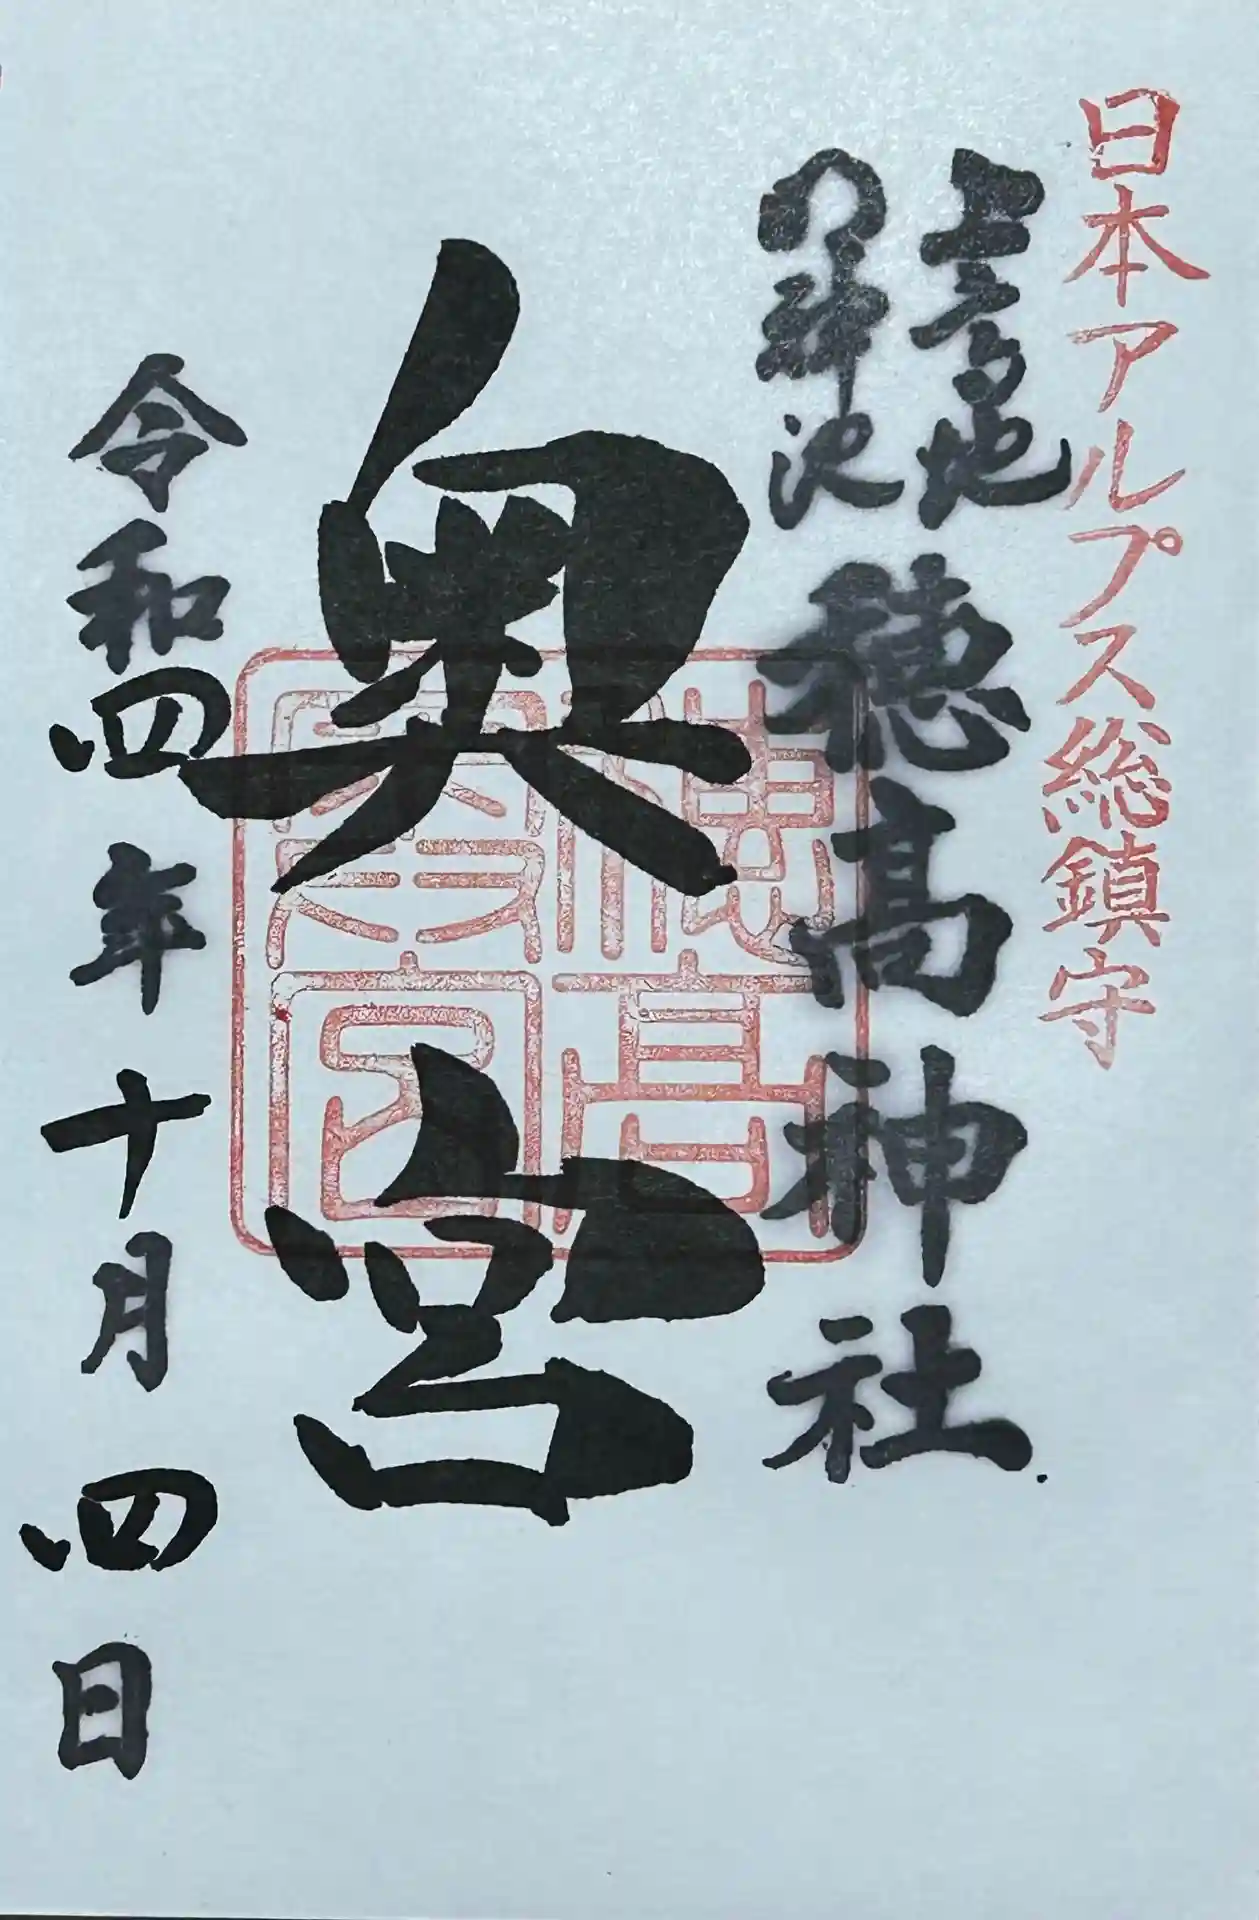 日本アルプス総鎮守
上高地
明神池
穂高神社
奥宮
穂高
奥宮
令和四年十月四日